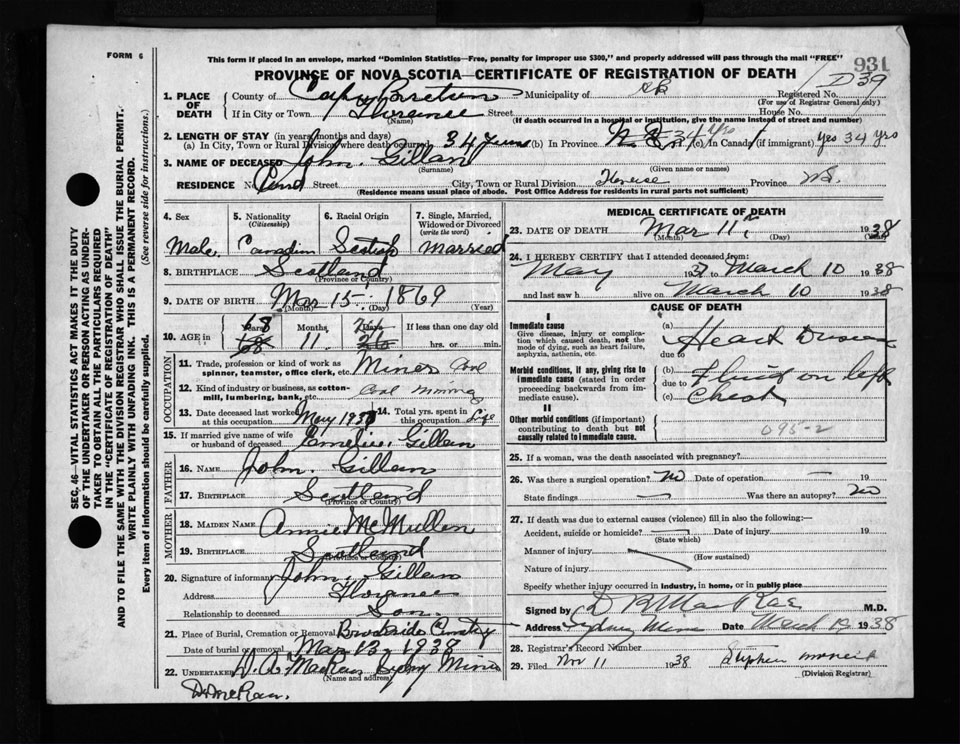 FORM 6
This form if placed in an envelope, marked "Dominion Statistics—Free, penalty for improper use $300," and properly addressed will pass through the mail "FREE"
931
PROVINCE OF NOVA SCOTIA—CERTIFICATE OF REGISTRATION OF DEATH
D39
1. PLACE OF DEATH
County of Cape Breton Municipality of Registered No.
(For use of Registrar General only)
If in City or Town Florence Street House No.
(Name) (If death occurred in a hospital or institution, give the name instead of street and number)
2. LENGTH OF STAY (in years, months and days)
(a) In City, Town or Rural Division where death occurred 34 Years (b) In Province 34 yrs (c) In Canada (if immigrant) yes 34 yrs
3. NAME OF DECEASED John. Gillan
(Surname) (Given name or names)
RESIDENCE No. Street City, Town or Rural Division Florence Province N.S.
(Residence means usual place of abode. Post Office Address for residents in rural parts not sufficient)
4. Sex Male
5. Nationality (Citizenship) Canadian
6. Racial Origin Scotish
7. Single, Married, Widowed or Divorced (write the word) Married
8. BIRTHPLACE Scotland
(Province or Country)
9. DATE OF BIRTH Mar 15. 1869
(Month) (Day) (Year)
10. AGE in Years 68 Months 11. Days If less than one day old hrs. or min.
OCCUPATION
11. Trade, profession or kind of work as spinner, teamster, office clerk, etc. Miner Coal
12. Kind of industry or business, as cotton-mill, lumbering, bank, etc. Coal mining
13. Date deceased last worked at this occupation May 1937 14. Total yrs. spent in this occupation Life
15. If married give name of wife or husband of deceased Emelie. Gillan
FATHER
16. NAME John. Gillan
17. BIRTHPLACE Scotland
(Province or Country)
MOTHER
18. MAIDEN NAME Annie McMullen
19. BIRTHPLACE Scotland
(Province or Country)
20. Signature of informant John. Gillan
Address Florence
Relationship to deceased Son.
21. Place of Burial, Cremation or Removal Brookside Cemetery
Date of burial or removal Mar 13, 1938
22. UNDERTAKER Sydney Mines
(Name and address)
D. McRae.
MEDICAL CERTIFICATE OF DEATH
23. DATE OF DEATH Mar 11 1938
(Month) (Day) (Year)
24. I HEREBY CERTIFY that I attended deceased from:
May 1937 to March 10 1938
and last saw h alive on March 10 1938
CAUSE OF DEATH
I
Immediate cause
Give disease, injury or complication which caused death, not the mode of dying, such as heart failure, asphyxia, asthenia, etc.
(a) Heart Disease
due to
Morbid conditions, if any, giving rise to immediate cause (stated in order proceeding backwards from immediate cause).
(b) Fluid on left
due to
(c) Chest
II
Other morbid conditions (if important) contributing to death but not causally related to immediate cause.
095-2
25. If a woman, was the death associated with pregnancy?
26. Was there a surgical operation? No Date of operation — 19
State findings — Was there an autopsy? No
27. If death was due to external causes (violence) fill in also the following:—
Accident, suicide or homicide? Date of injury 19
(State which)
Manner of injury
(How sustained)
Nature of injury
Specify whether injury occurred in industry, in home, or in public place
Signed by D B MacRae M.D.
Address Sydney Mines Date March 1938
28. Registrar's Record Number
29. Filed 11 1938 Stephen
(Division Registrar)
SEC. 46—VITAL STATISTICS ACT MAKES IT THE DUTY
OF THE UNDERTAKER OR PERSON ACTING AS UNDER-
TAKER TO OBTAIN ALL THE PARTICULARS REQUIRED
IN THE "CERTIFICATE OF REGISTRATION OF DEATH"
AND TO FILE THE SAME WITH THE DIVISION REGISTRAR WHO SHALL ISSUE THE BURIAL PERMIT.
WRITE PLAINLY WITH UNFADING INK. THIS IS A PERMANENT RECORD.
Every item of information should be carefully supplied. (See reverse side for instructions.)